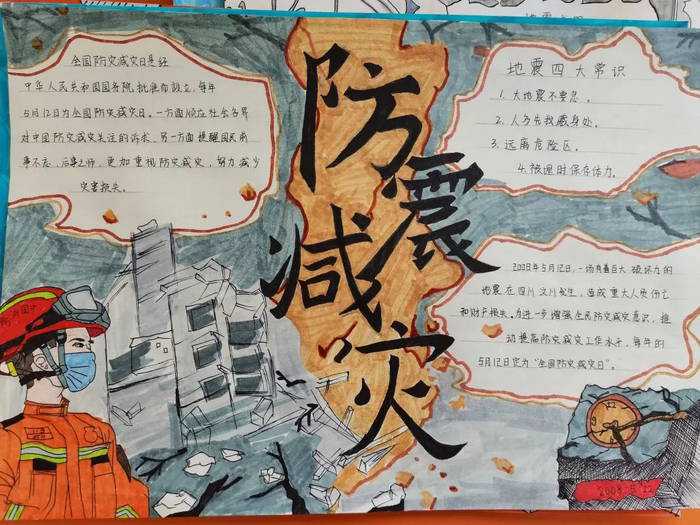 防震减灾
全国防灾减灾日是经
中华人民共和国国务院批准而设立,每年
5月12日为全国防灾减灾日。一方面顺应社会各界
对中国防灾减灾关注的诉求,另一方面提醒国民前
事不忘,后事之师,更加重视防灾减灾,努力减少
灾害损失。
地震四大常识
1. 大地震不要急。
2. 人多先找藏身处。
3. 远离危险区。
4. 被埋时保存体力。
2008年5月12日,一场有着巨大破坏力的
地震在四川汶川发生,造成重大人员伤亡
和财产损失。为进一步增强全民防灾减灾意识,推
动提高防灾减灾工作水平,每年的
5月12日定为“全国防灾减灾日”。